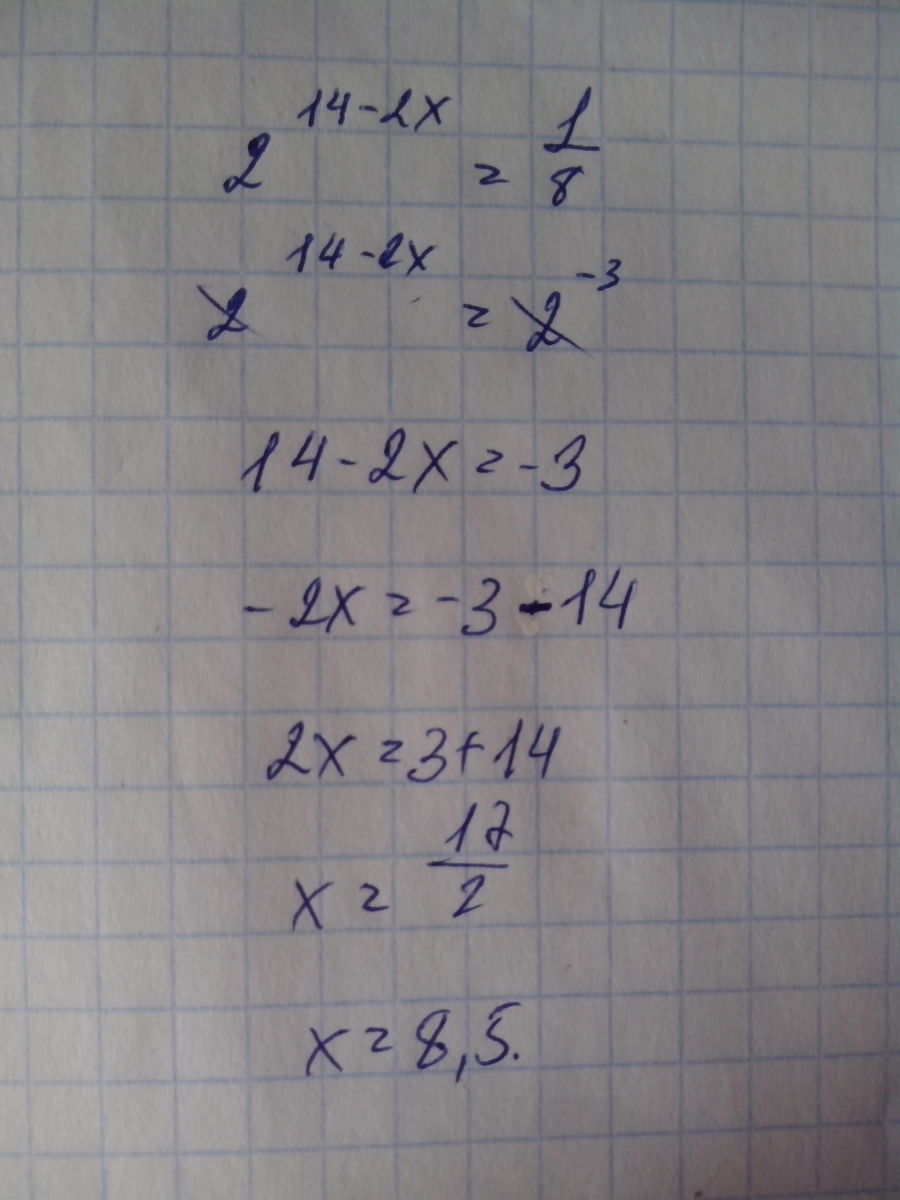 2^(14-2x) = 1/8
2^(14-2x) = 2^(-3)
14-2x=-3
-2x=-3-14
2x=3+14
x=17/2
x=8,5.